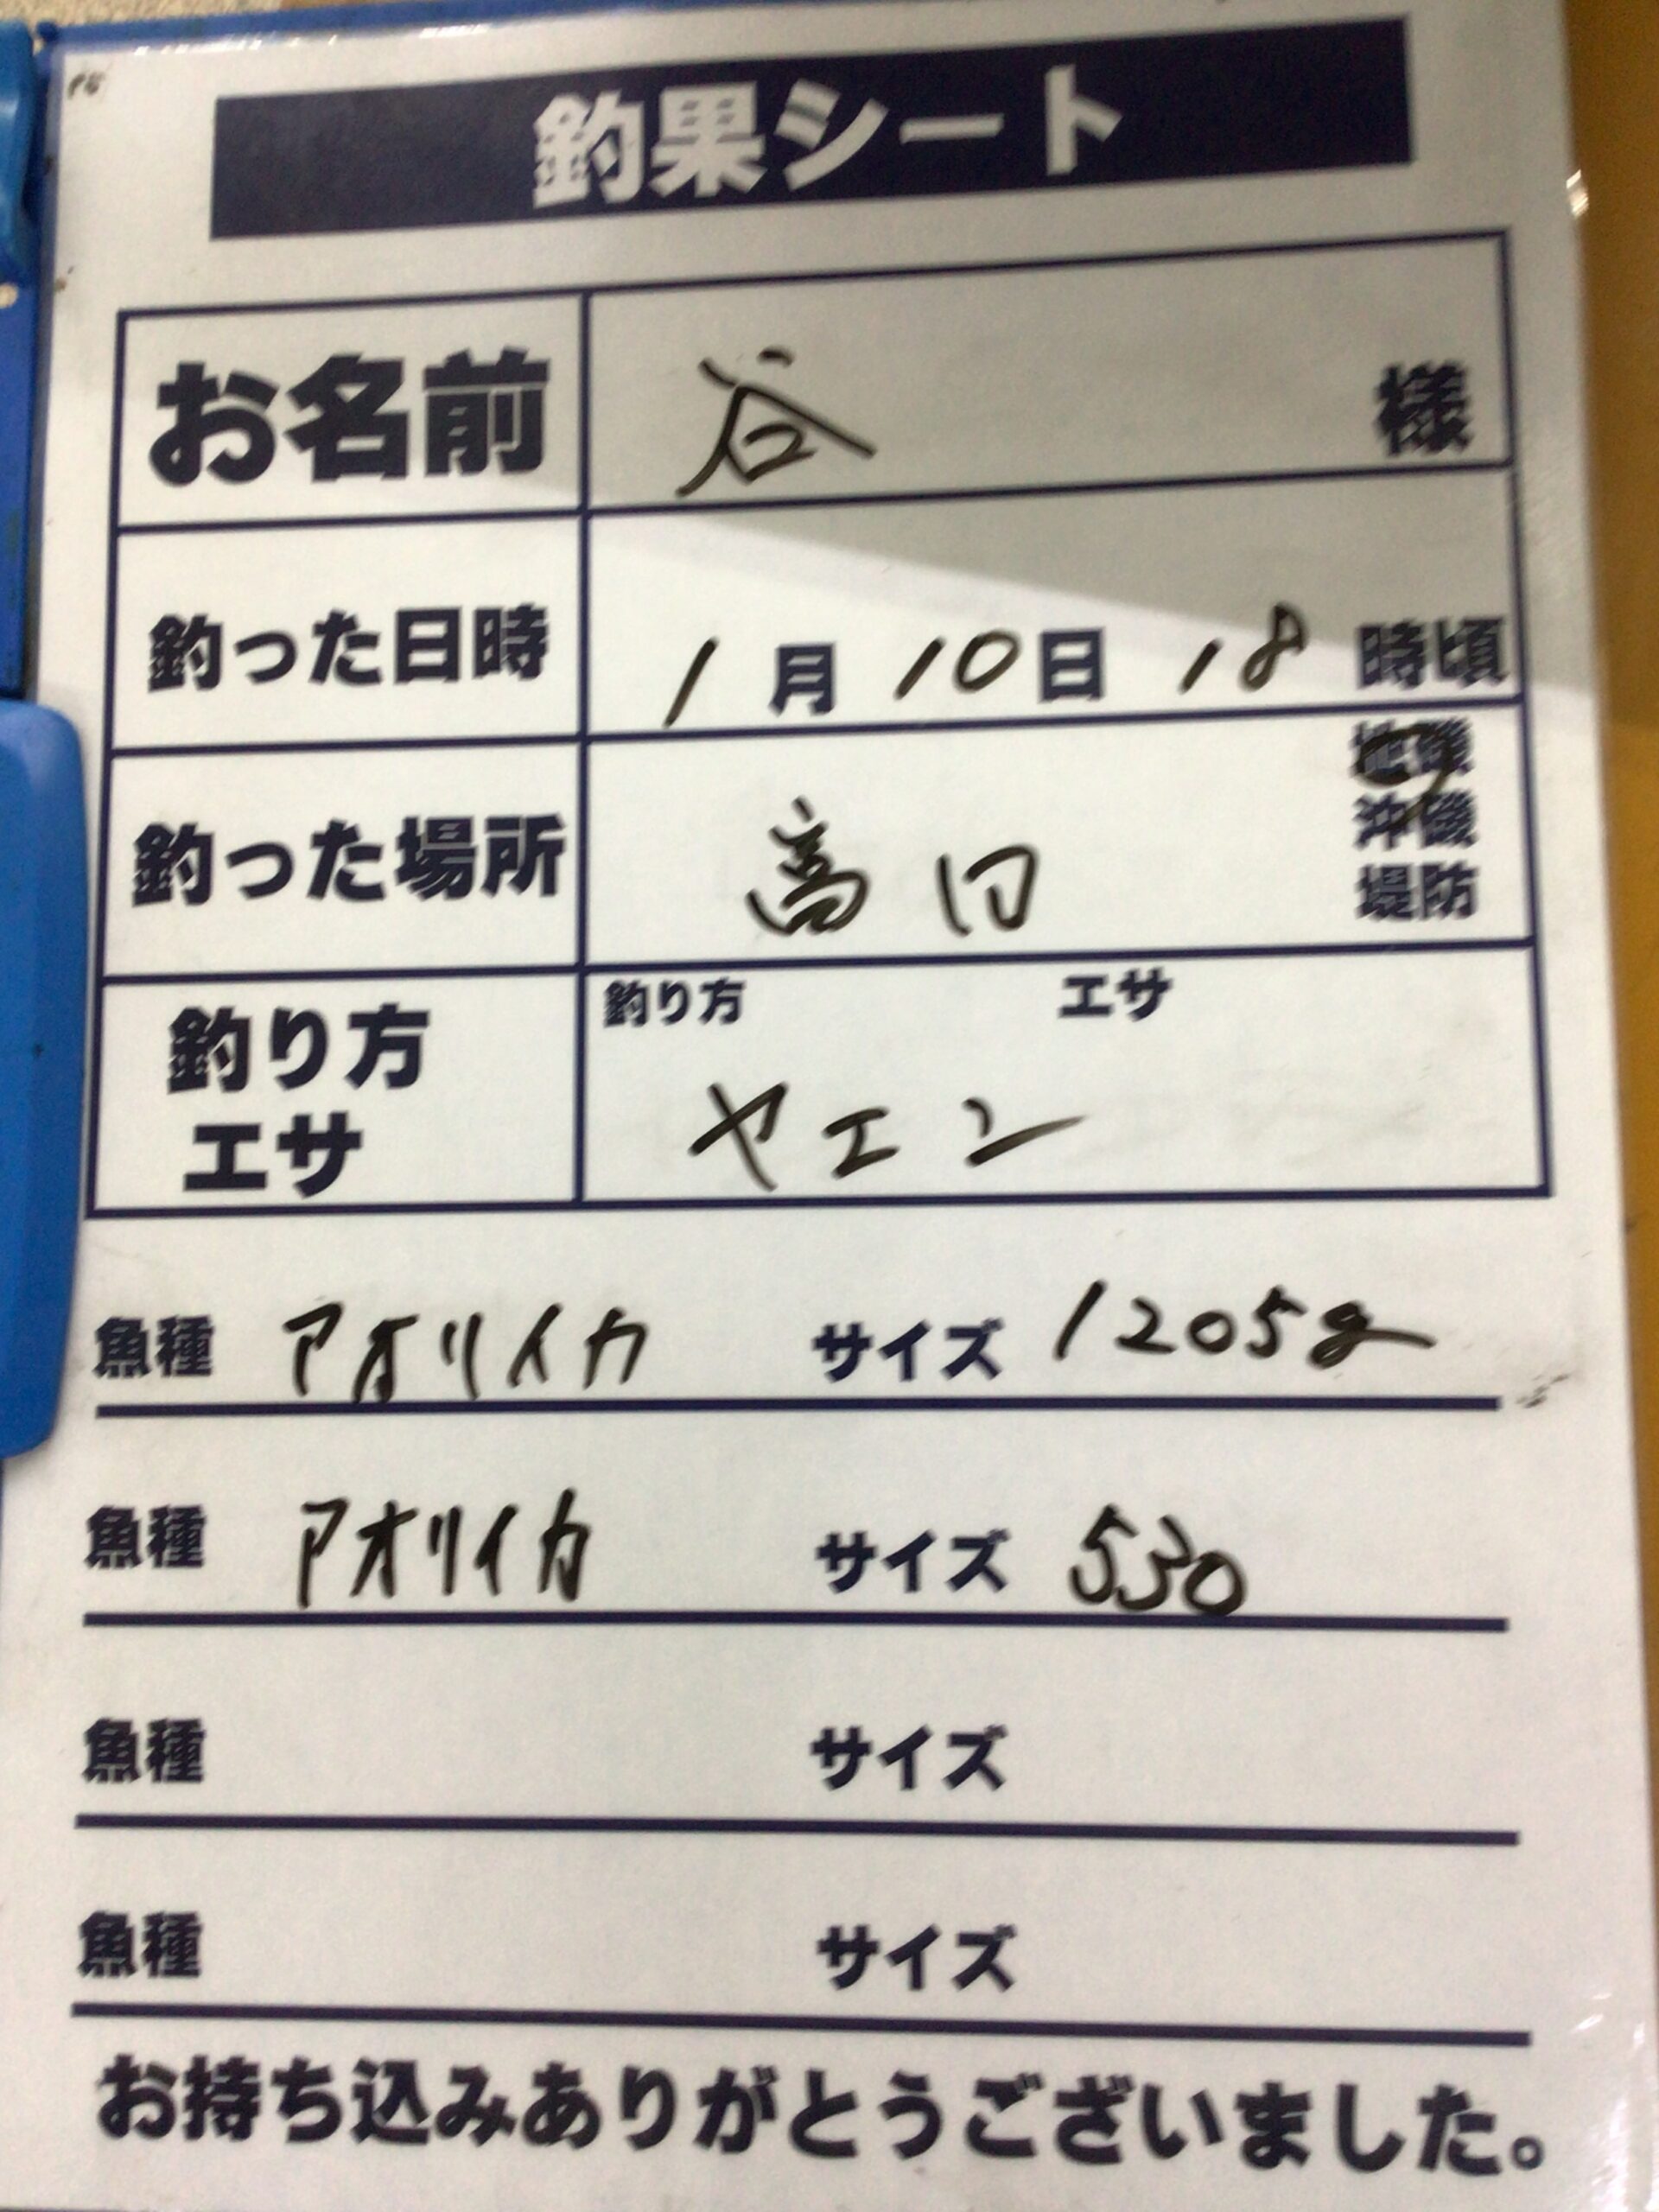 釣果シート
お名前 谷 様
釣った日時 1月10日 18時頃
地磯
釣った場所 沖磯
堤防
釣り方 エサ
釣り方
エサ ヤエン
魚種 アオリイカ サイズ 1205g
魚種 アオリイカ サイズ 530
魚種 サイズ
魚種 サイズ
お持ち込みありがとうございました。